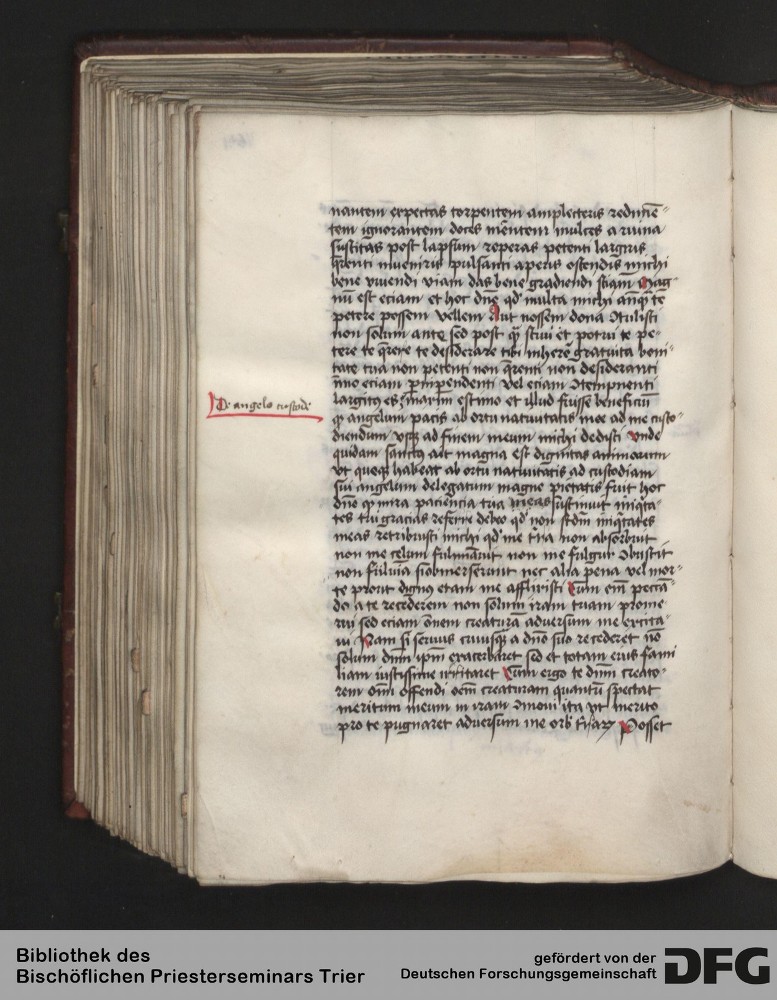 nantem expectas torpentem amplecteris redimē
tem ignorantem doces merentem mulces a ruina
suscitas post lapsum reperas petenti largiris
q̄renti inueniris pulsanti aperis ostendis michi
bene viuendi viam das bene gradiendi Mag
nū est eciam et hoc dn̄e qd multa michi anq̄ te
petere possem vellem Aut nossem dona 9tulisti
non solum ante sed post q̄ sciui et potui te pe
tere te q̄rere te desiderare tibi inherē gratuita boni
tate tua non petenti non q̄renti non desideranti
ymo eciam ꝑuipendenti vel eciam 9tempnenti
largitꝰ es maxim estimo et illud fuisse beneficiū
De angelo custode
ꝙ angelum pacis ab ortu natiuitatis mee ad me custo
diendum vsqꝫ ad finem meum michi dedisti vnde
quidam sanctꝰ ait magna est dignitas animarum
vt queqꝫ habeat ab ortu natiuitatis ad custodiam
sui angelum delegatum magne pietatis fuit hoc
dn̄e ꝙ mira paciencia tua meas sustinuit iniq̄ta
tes tui gracias referre debeo qd non scdm iniq̄tates
meas retribuisti michi qd me t̄ra non absorbuit
non me celum fulminauit non me fulgur 9bussit
non fluuia submerserunt nec alia pena vel mor
te prout dignꝰ etam me afflixisti Cum em̄ peccā
do a te recederem non solum iram tuam prome
rui sed eciam om̄nem creaturā aduersum me excita
ui Nam si seruus cuiusqꝫ a dn̄o suo recederet nō
solum dnm̄ ip̄m exacerbaret sed et totam eius fami
liam iustissime irritaret Cum ergo te dnm̄ creato
rem om̄i offendi oem̄ creaturam quantū spectat
meritum meum in iram 9moui ita vt merito
pro te pugnaret aduersum me orbꝰ t̄raꝝ Posset
Bibliothek des
Bischöflichen Priesterseminars Trier
gefördert von der
Deutschen Forschungsgemeinschaft
DFG